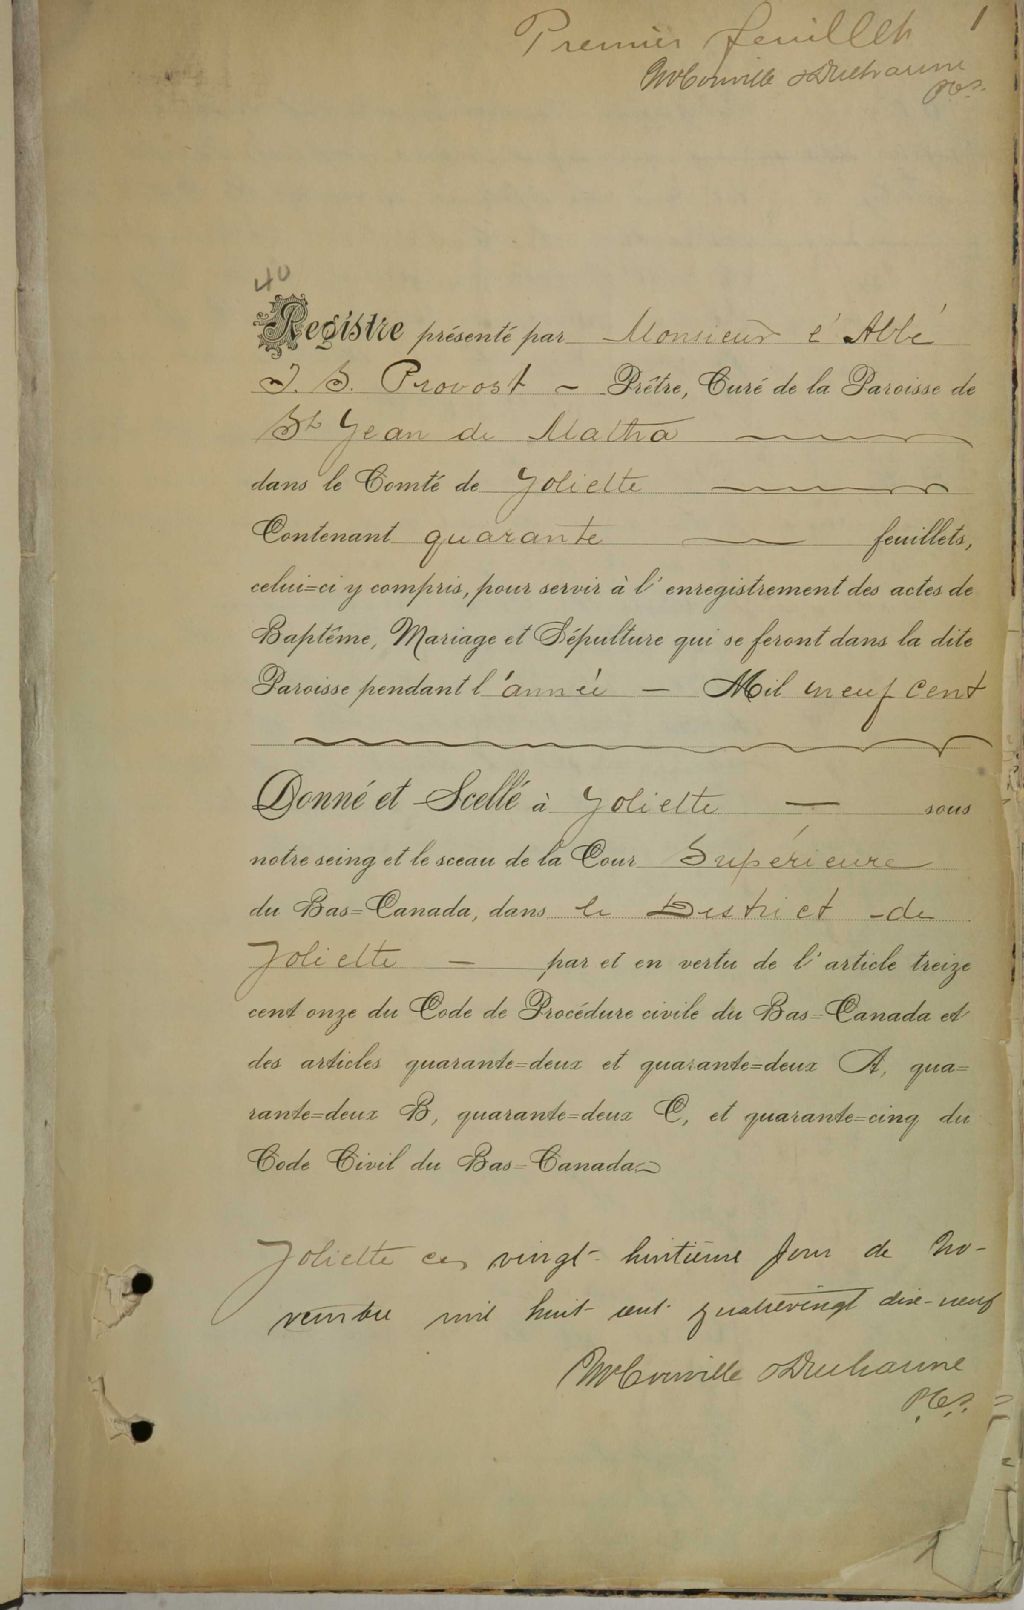 Premier feuillet 1
McConville & Ducharme
P.C.S.
40
Registre présenté par Monsieur l'Abbé
J. B. Provost – Prêtre, Curé de la Paroisse de
St Jean de Matha
dans le Comté de Joliette
Contenant quarante feuillets,
celui=ci y compris, pour servir à l'enregistrement des actes de
Baptême, Mariage et Sépulture qui se feront dans la dite
Paroisse pendant l'année – Mil neuf cent
Donné et Scellé à Joliette — sous
notre seing et le sceau de la Cour Supérieure
du Bas=Canada, dans le District de
Joliette — par et en vertu de l'article treize
cent onze du Code de Procédure civile du Bas=Canada et
des articles quarante=deux et quarante=deux A, qua=
rante=deux B, quarante=deux C, et quarante=cinq du
Code Civil du Bas=Canada.
Joliette ce vingt-huitième jour de No-
vembre mil huit cent quatrevingt dix-neuf
McConville & Ducharme
P.C.S.